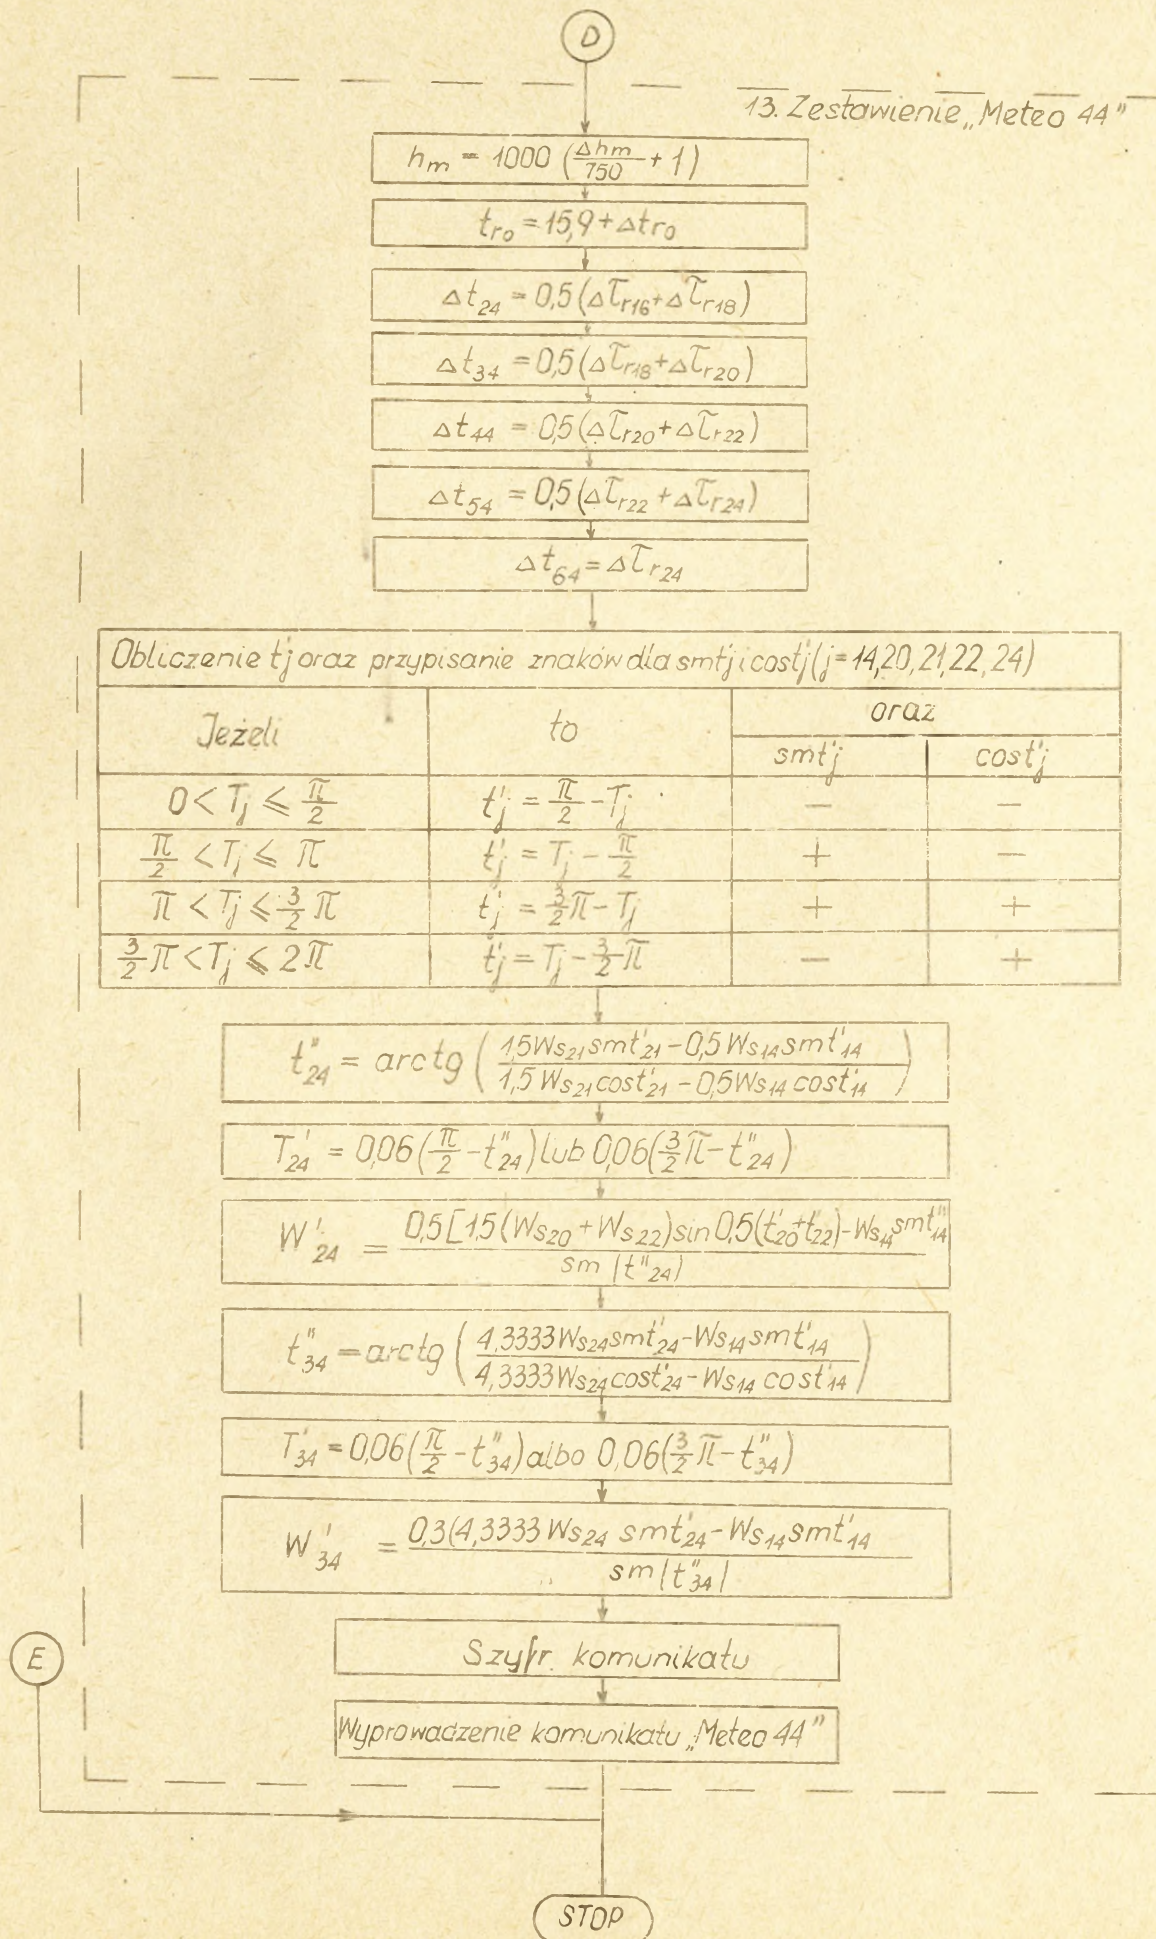 D
13. Zestawienie „Meteo 44"
h_m = 1000 (Δhm/750 + 1)
t_ro = 15,9 + Δt_ro
Δt_24 = 0,5 (Δτ_r16 + Δτ_r18)
Δt_34 = 0,5 (Δτ_r18 + Δτ_r20)
Δt_44 = 0,5 (Δτ_r20 + Δτ_r22)
Δt_54 = 0,5 (Δτ_r22 + Δτ_r24)
Δt_64 = Δτ_r24
Obliczenie t'j oraz przypisanie znaków dla smt'j i cost'j (j = 14,20,21,22,24)
Jeżeli to oraz
smt'j cost'j
0 < Tj ⩽ π/2 t'j = π/2 - Tj − −
π/2 < Tj ⩽ π t'j = Tj - π/2 + −
π < Tj ⩽ 3/2 π t'j = 3/2 π - Tj + +
3/2 π < Tj ⩽ 2π t'j = Tj - 3/2 π − +
t''_24 = arctg ( 1,5 Ws_21 smt'_21 - 0,5 Ws_14 smt'_14 / 1,5 Ws_21 cost'_21 - 0,5 Ws_14 cost'_14 )
T'_24 = 0,06 (π/2 - t''_24) lub 0,06 (3/2 π - t''_24)
W'_24 = 0,5 [1,5 (Ws_20 + Ws_22) sin 0,5 (t'_20 + t'_22) - Ws_14 smt''_14 / sm |t''_24|
t''_34 = arctg ( 4,3333 Ws_24 smt'_24 - Ws_14 smt'_14 / 4,3333 Ws_24 cost'_24 - Ws_14 cost'_14 )
T'_34 = 0,06 (π/2 - t''_34) albo 0,06 (3/2 π - t''_34)
W'_34 = 0,3 (4,3333 Ws_24 smt'_24 - Ws_14 smt'_14 / sm |t''_34|
Szyfr. komunikatu
E
Wyprowadzenie komunikatu „Meteo 44"
STOP